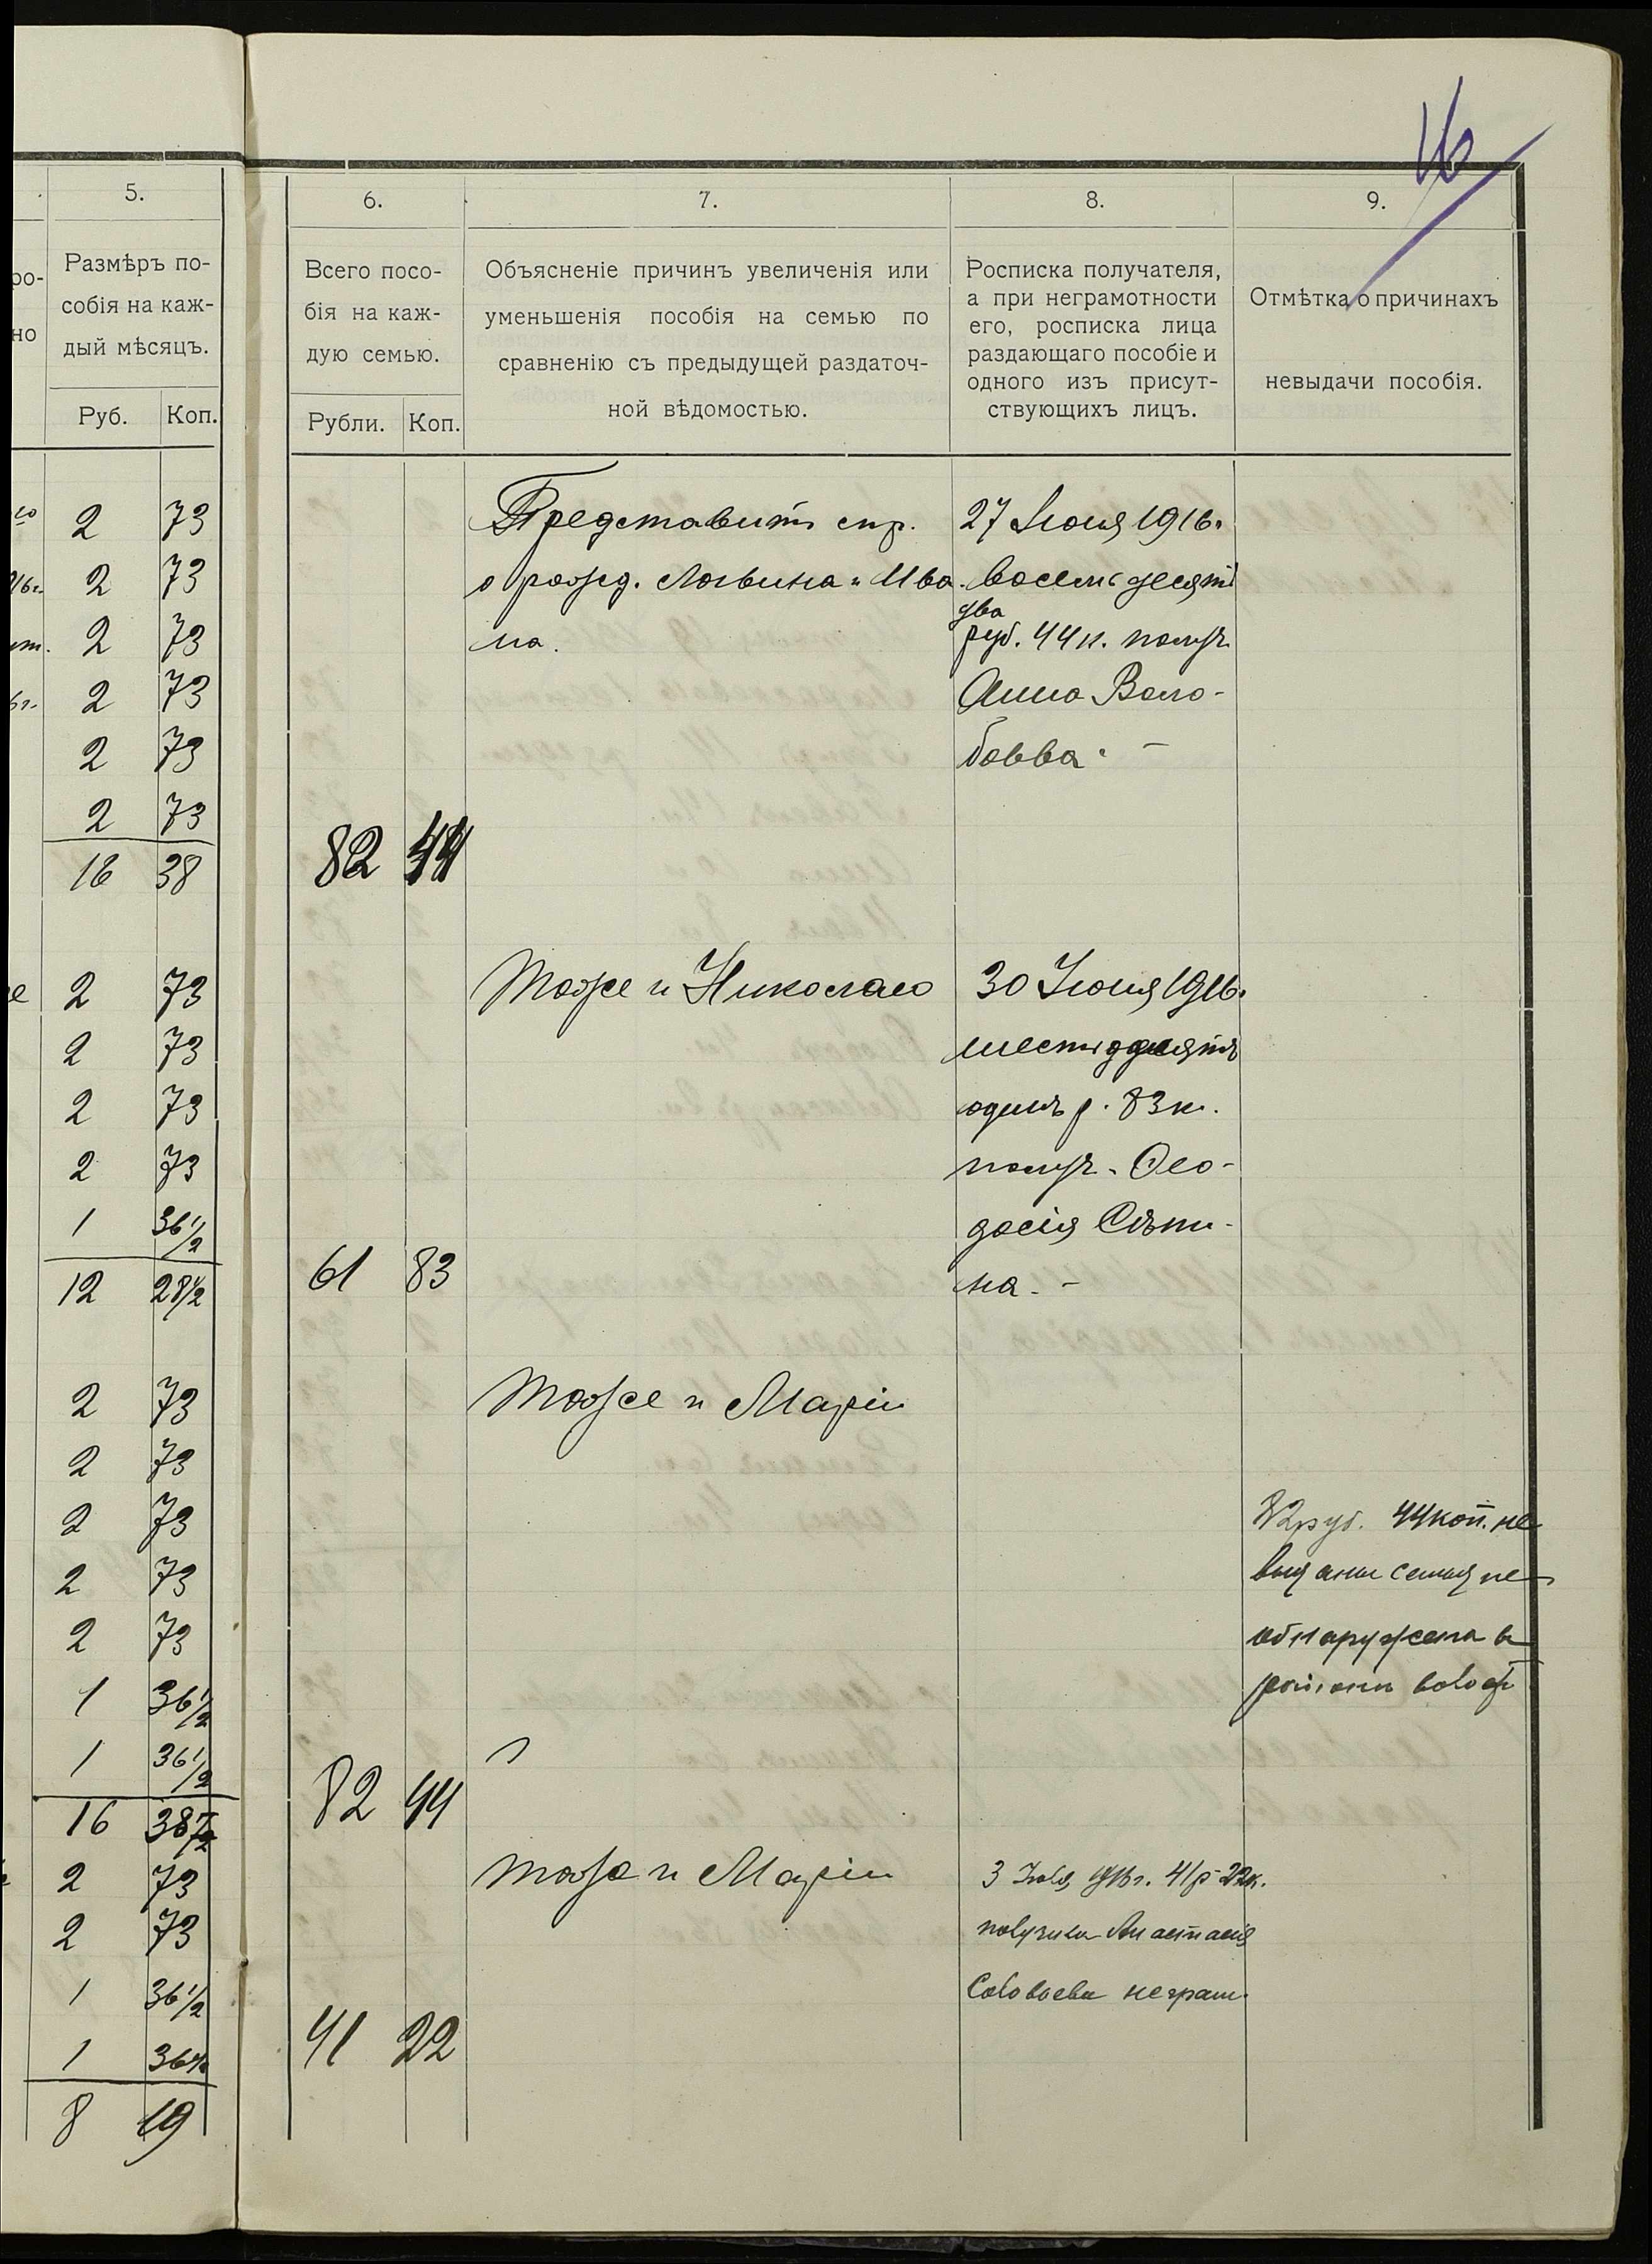 16
5.
Размѣръ по-
собія на каж-
дый мѣсяцъ.
Руб. Коп.
6.
Всего посо-
бія на каж-
дую семью.
Рубли. Коп.
7.
Объясненіе причинъ увеличенія или
уменьшенія пособія на семью по
сравненію съ предыдущей раздаточ-
ной вѣдомостью.
8.
Росписка получателя,
а при неграмотности
его, росписка лица
раздающаго пособіе и
одного изъ присут-
ствующихъ лицъ.
9.
Отмѣтка о причинахъ
невыдачи пособія.
2 73
2 73
2 73
2 73
2 73
2 73
16 38
82 44
Представить спр.
о рожд. Логвина и Ива
на.
27 Іюня 1916.
восемьдесятъ
два
руб. 44 к. получ.
Анна Воло-
2 73
2 73
2 73
2 73
1 36 1/2
12 28 1/2
61 83
Тоже и Николаю
30 Іюня 1916.
шестьдесятъ
одинъ р. 83 к.
получ. Ѳео-
досія
на. -
2 73
2 73
2 73
2 73
2 73
1 36 1/2
1 36 1/2
16 38 1/2
82 44
Тоже и Маріи
82 руб. 44 коп. не
выданы семья не
обнаружена в
районѣ
2 73
2 73
1 36 1/2
1 36 1/2
8 19
41 22
Тоже и Маріи
3 Іюля 1916 г. 41 р 22 к.
получила Анастасія
Соловьева неграм.